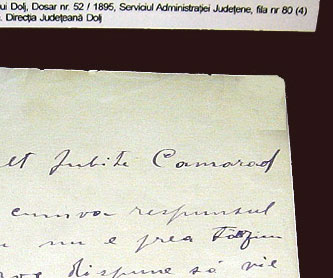 ui Dolj, Dosar nr. 52 / 1895, Serviciul Administraţiei Judeţene, fila nr 80 (4)
. Direcţia Judeţeană Dolj
lt Iubite Camarad
cumva respunsul
nu e prea târziu
dispune să vie